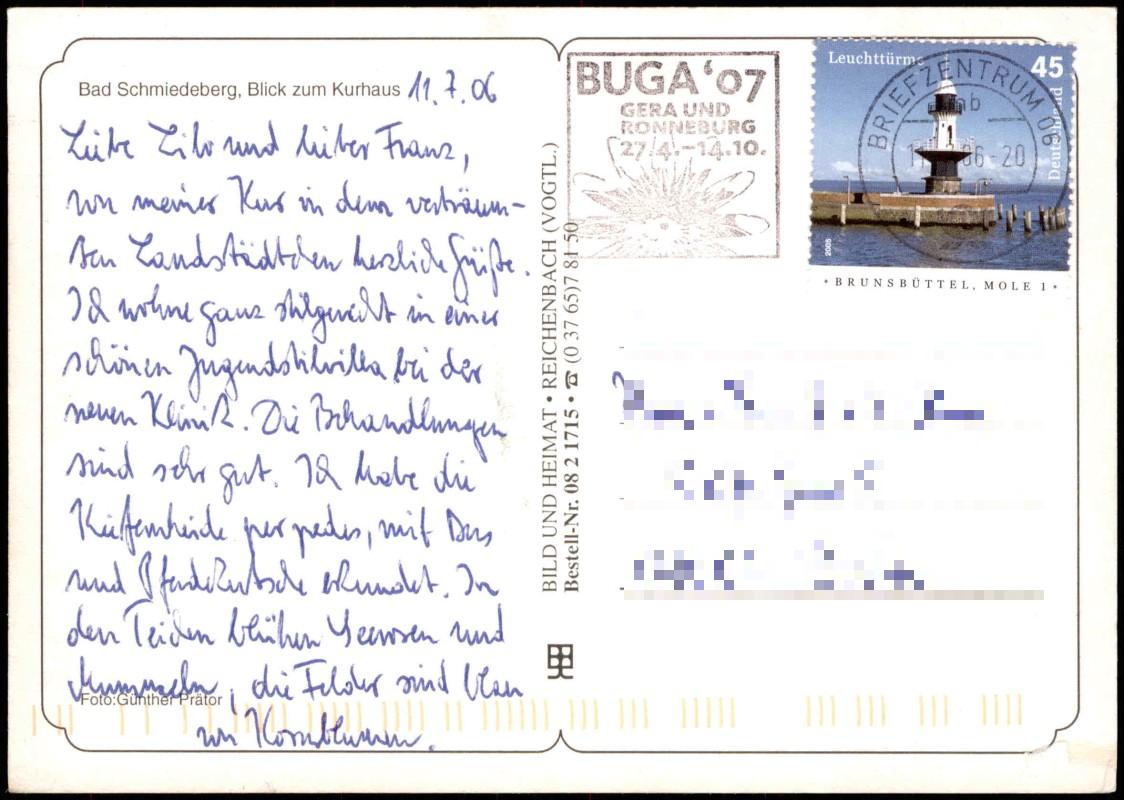 Bad Schmiedeberg, Blick zum Kurhaus 11.7.06
Liebe Lilo und lieber Franz,
von meiner Kur in dem verträum-
ten Landstädtchen herzliche Grüße.
Ich wohne ganz stilgerecht in einer
schönen Jugendstilvilla bei der
neuen Klinik. Die Behandlungen
sind sehr gut. Ich habe die
per pedes, mit Bus
und Pferdekutsche erkundet. In
den Teichen blühen Seerosen und
Mummeln, die Felder sind blau
von Kornblumen.
Foto:Günther Prätor
BILD UND HEIMAT • REICHENBACH (VOGTL.)
Bestell-Nr. 08 2 1715 • ☎ (0 37 65)7 81 50
BUGA '07
GERA UND
RONNEBURG
27.4.-14.10.
Leuchttürme
45
Deutschland
2005
• BRUNSBÜTTEL, MOLE 1 •
BRIEFZENTRUM 06
mb
06-20